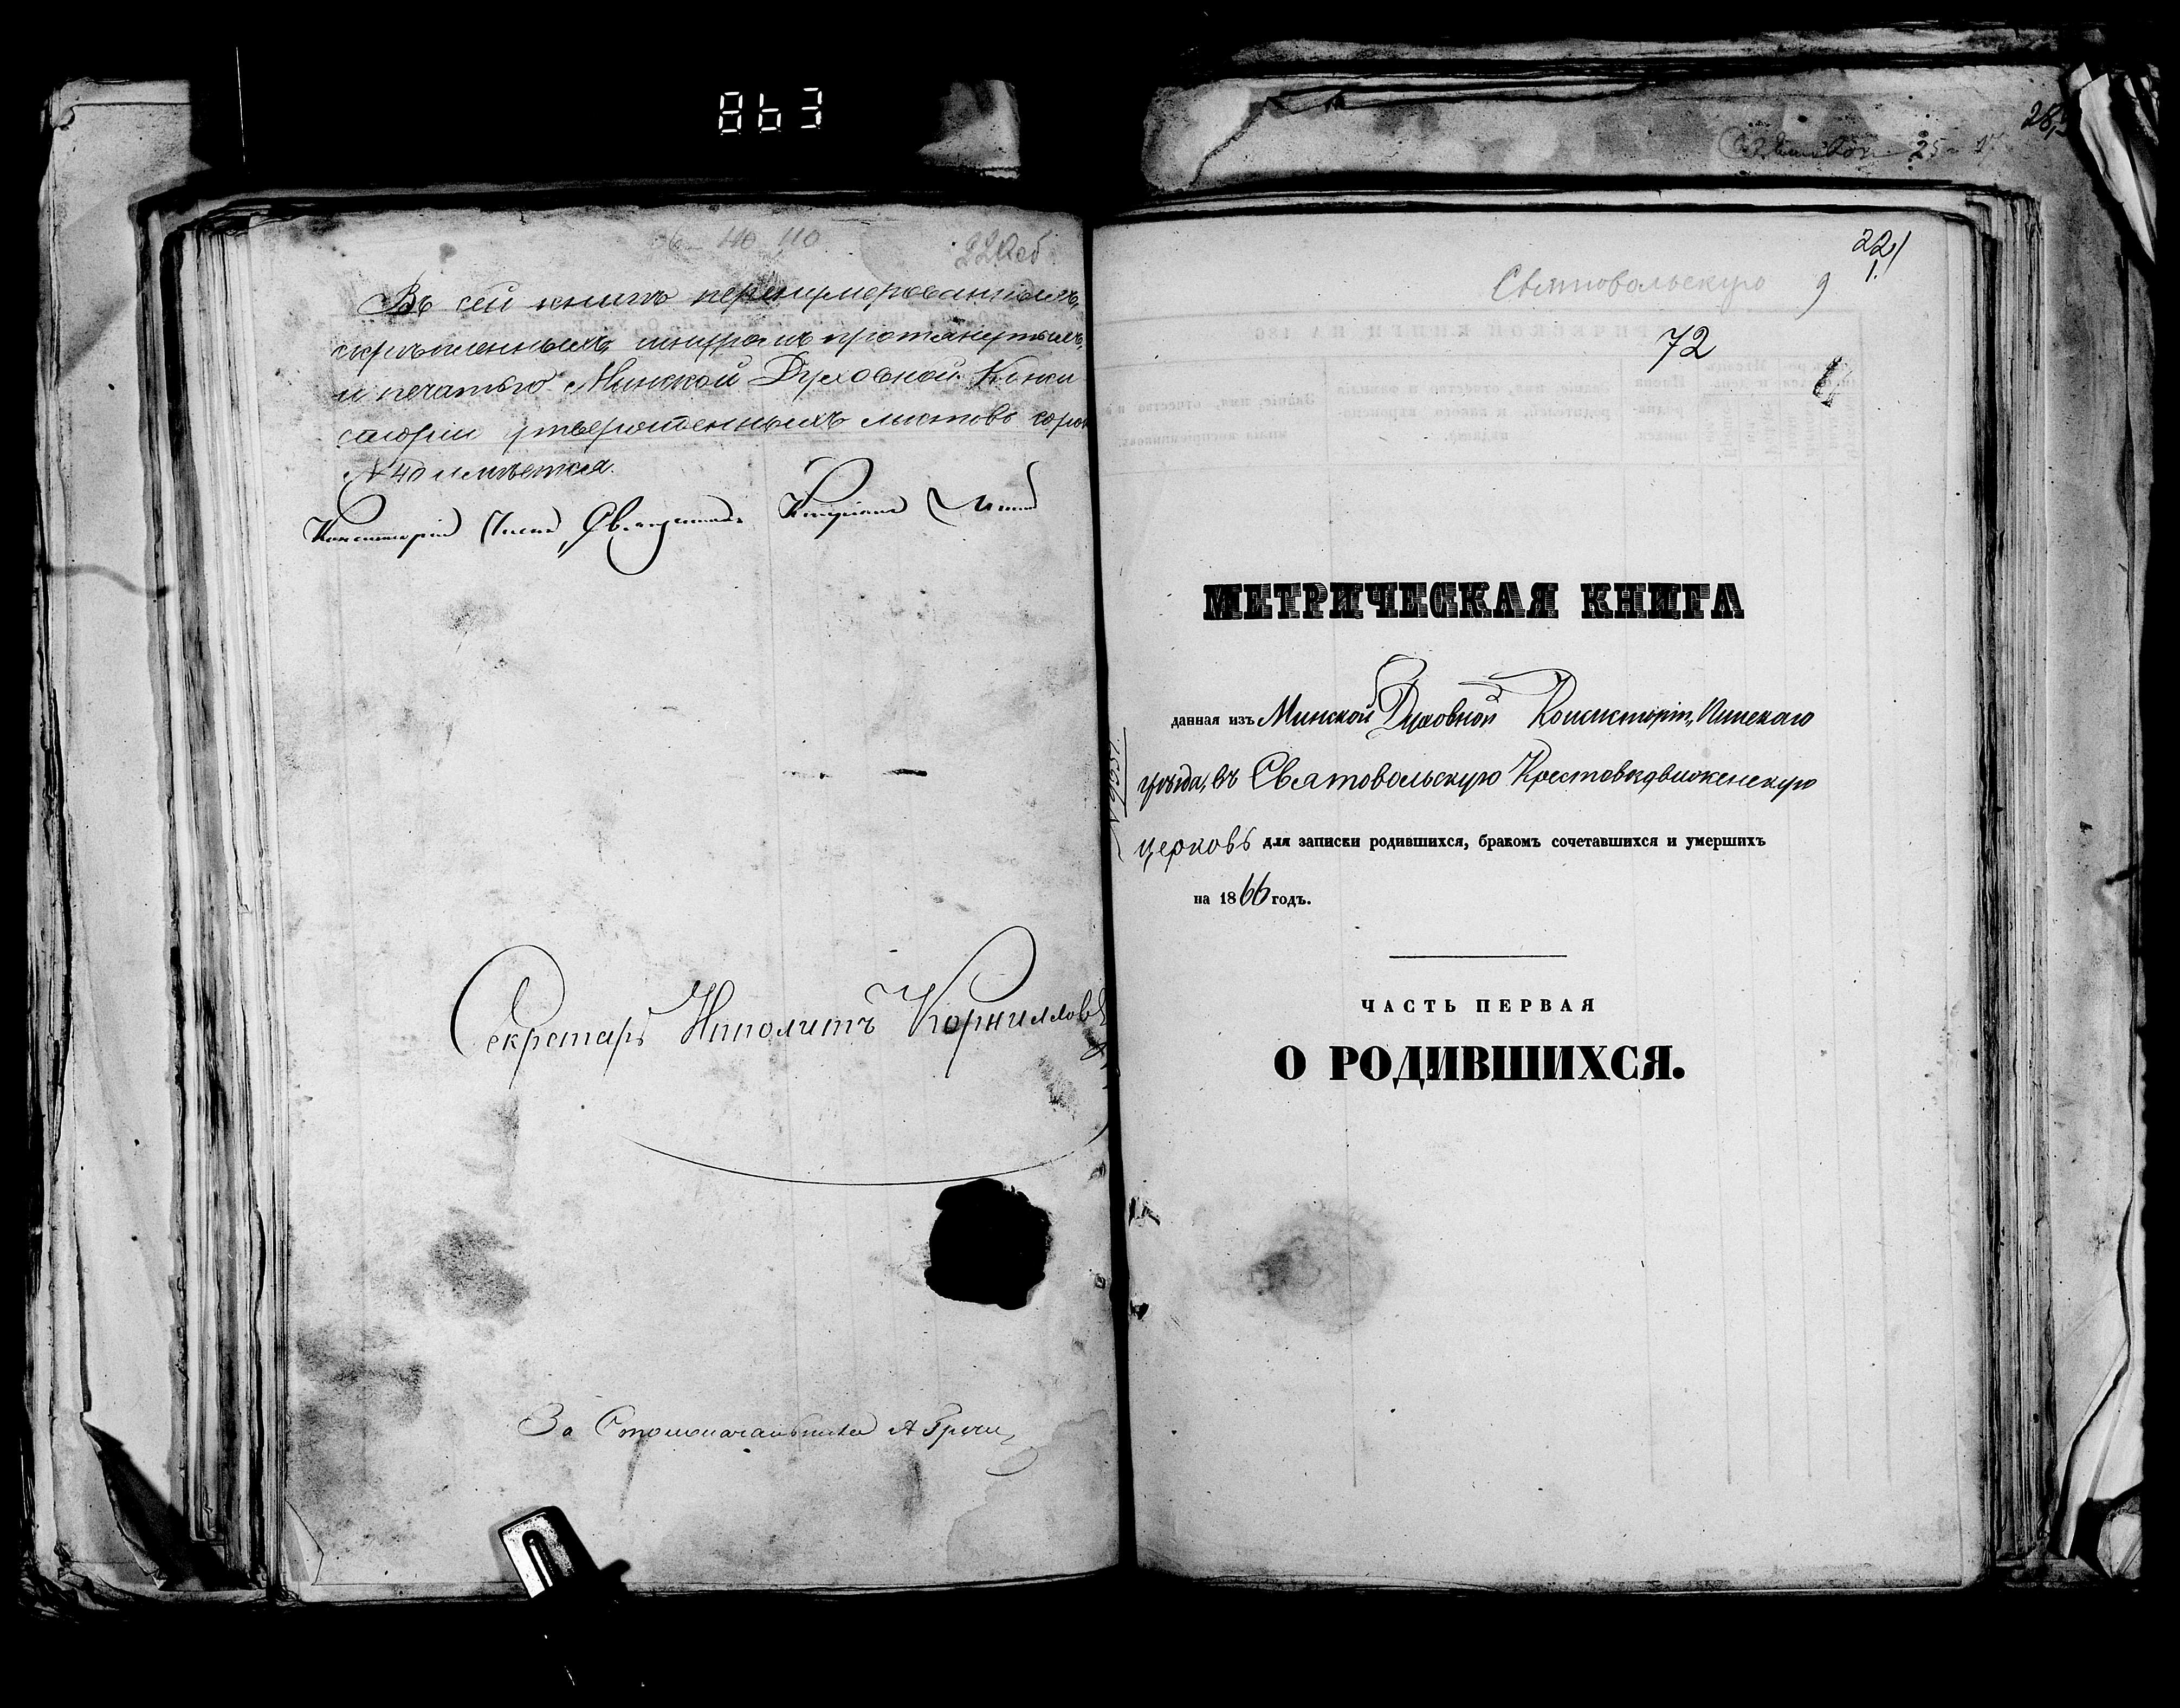 863
220об
Въ сей книгѣ перенумерованныхъ,
скрѣпленныхъ, шнуромъ протянутыхъ,
и печатью Минской Духовной Конси
сторіи утвержденныхъ листовъ сорок
№ 40 имѣется.
Консисторіи Членъ, Священникъ
Секретарь Ипполитъ Корниллов
За Столоначальника А Гречи
221
1.
Святовольскую 9
72
МЕТРИЧЕСКАЯ КНИГА
данная изъ Минской Духовной Консисторіи, Пинскаго
уѣзда, въ Святовольскую Крестовоздвиженскую
церковь для записки родившихся, бракомъ сочетавшихся и умершихъ
на 1866 годъ.
ЧАСТЬ ПЕРВАЯ
О РОДИВШИХСЯ.